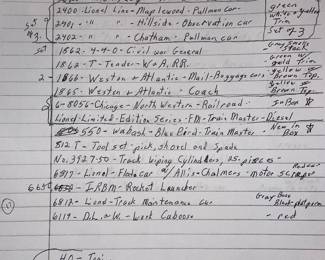 2400- Lionel Line- Maplewood - Pullman car- green
2401- " " - Hillside- Observation car White + Gold Trim
2402- " " - Chatham - Pullman car Set of 3
Set 1862- 4-4-0- Civil war General
1862-T- Tender- W+A.RR. Green w/ gold Trim
2- 1866- Weston + Atlantic - Mail-Baggage car- Yellow w/ Brown Top.
1865- Weston + Atlantic Coach yellow w/ Brown Top
6-8056- Chicago- North Western- Railroad - In Box
Lionel-Limited-Edition Series-FM-Train Master-Diesel
550- Wabash- Blue Bird- Train Master - New In Box
812 T- Tool set- pick, shovel and Spade
No. 3927-50- Track Wiping Cylinders, 25-pieces-
6817- Lionel- Flatcar w/ Allis-Chalmers- motor scraper
6650- IRBM- Rocket Launcher
6812- Lionel- Track Maintenance car - Gray Base Black platform
6119- D.L.+W.- Work Caboose - red
HO- Train